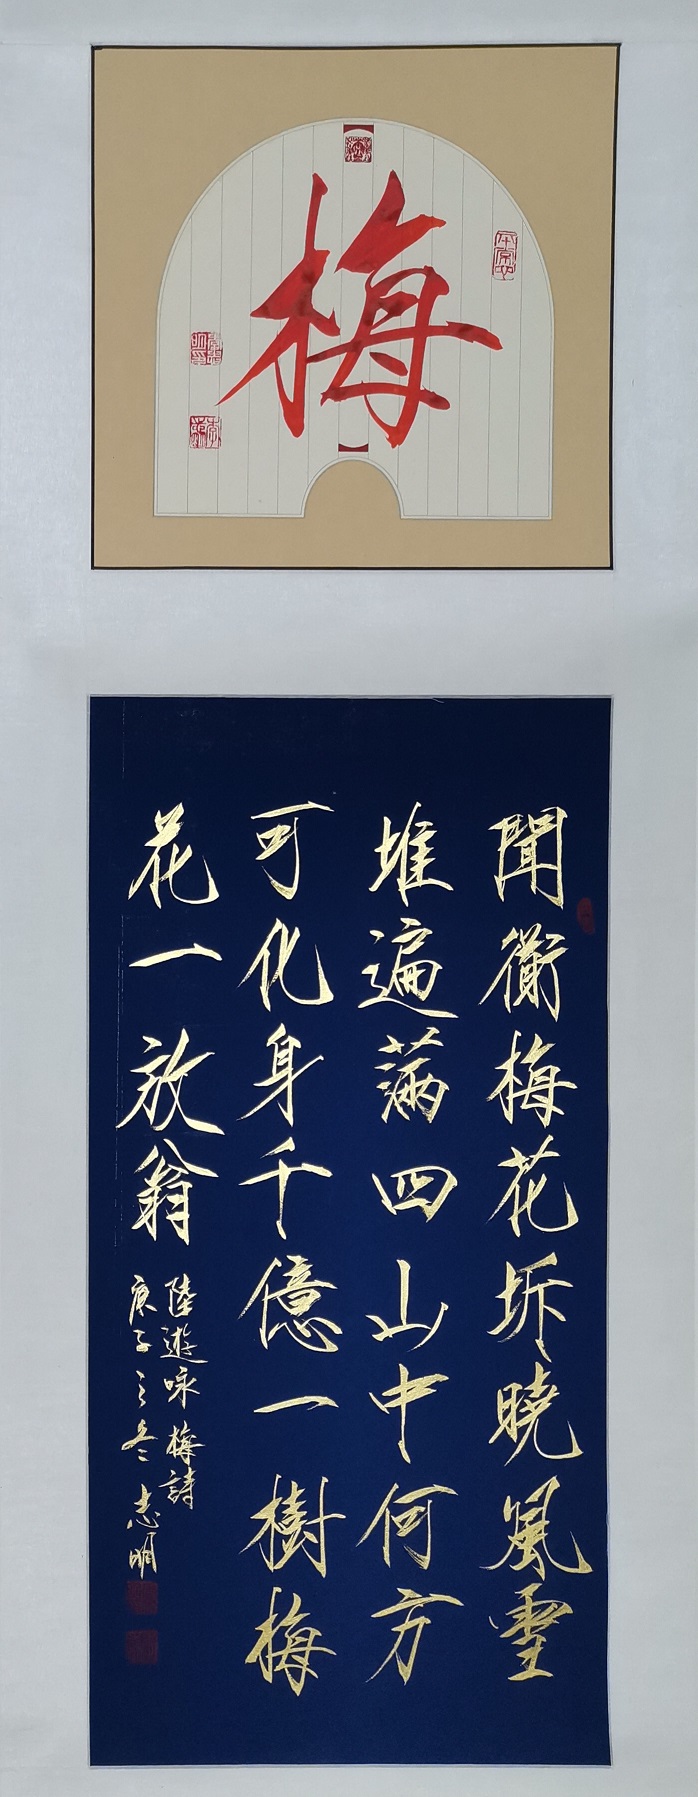 梅
聞衟梅花坼曉風雪
堆遍滿四山中何方
可化身千億一樹梅
花一放翁
陸遊咏梅詩
庚子之冬志明